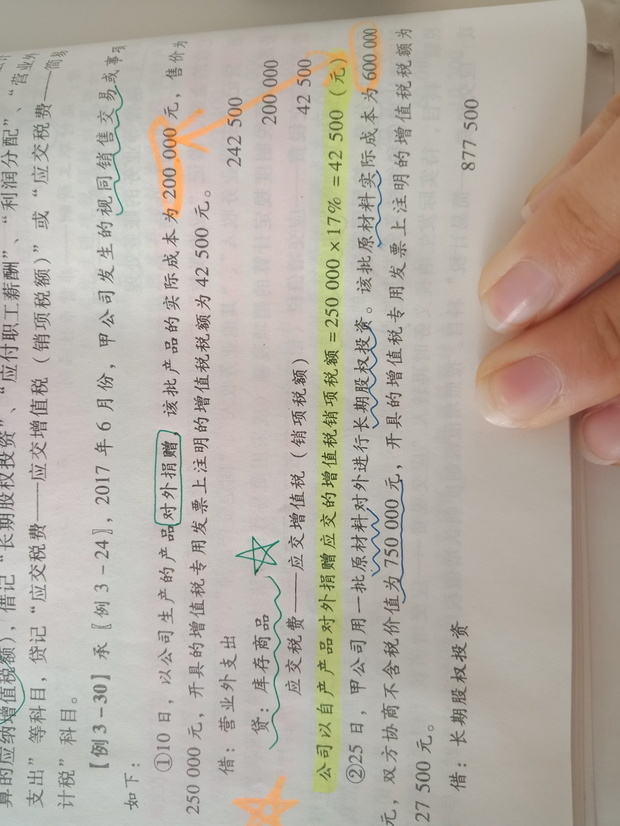 算的应纳增值税额），借记“长期股权投资”、“应付职工薪酬”、“利润分配”、“营业外
支出”等科目，贷记“应交税费——应交增值税（销项税额）”或“应交税费——简易
计税”科目。
【例3-30】承〖例3-24〗，2017年6月份，甲公司发生的视同销售交易或事项
如下：
①10日，以公司生产的产品对外捐赠，该批产品的实际成本为200 000元，售价为
250 000元，开具的增值税专用发票上注明的增值税税额为42 500元。
借：营业外支出 242 500
贷：库存商品 200 000
应交税费——应交增值税（销项税额） 42 500
公司以自产产品对外捐赠应交的增值税销项税额=250 000×17%=42 500（元）
②25日，甲公司用一批原材料对外进行长期股权投资。该批原材料实际成本为600 000
元，双方协商不含税价值为750 000元，开具的增值税专用发票上注明的增值税税额为
27 500元。
借：长期股权投资 877 500